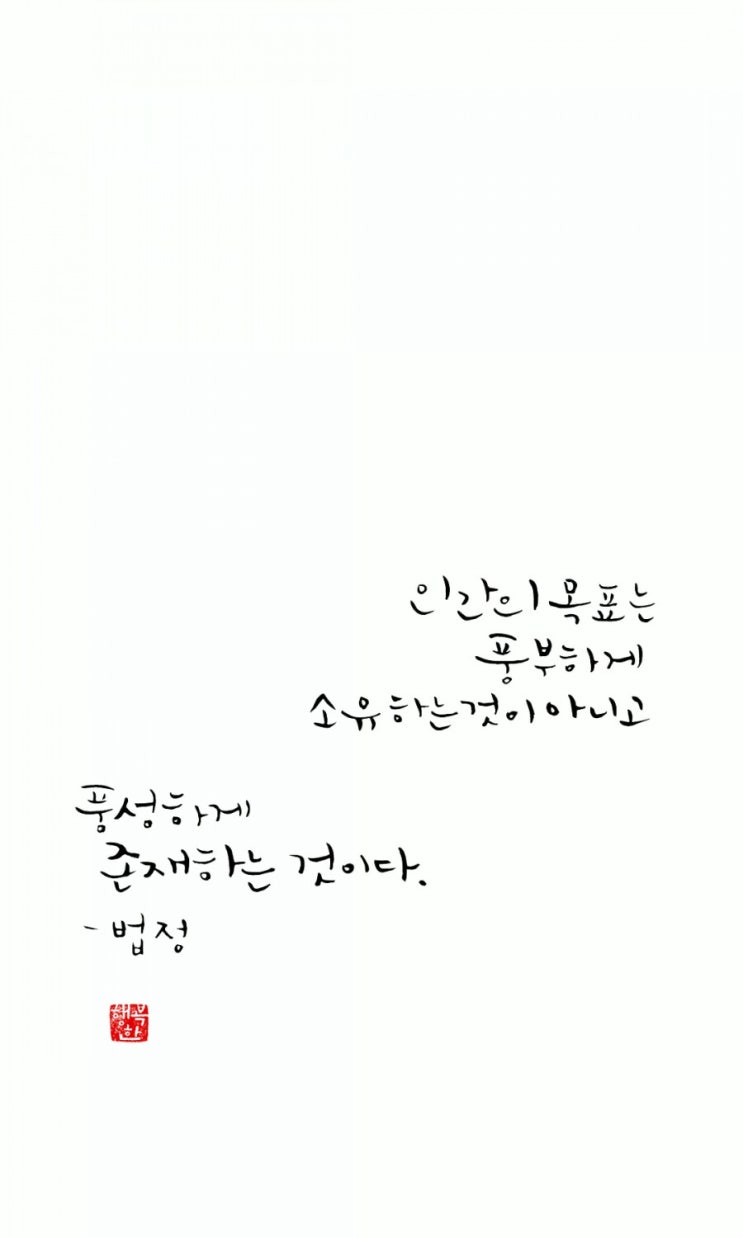 인간의 목표는
풍부하게
소유하는것이 아니고
풍성하게
존재하는 것이다.
- 법정
행복한